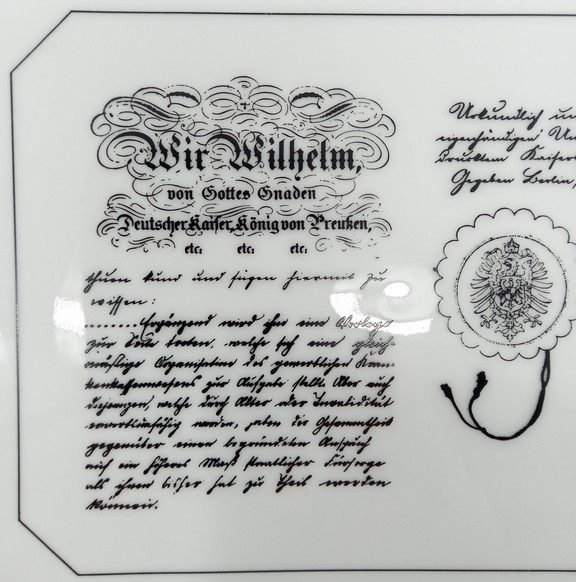 Wir Wilhelm,
von Gottes Gnaden
Deutscher Kaiser, König von Preußen,
etc: etc: etc:
thuen kund und fügen hiermit zu
wissen:
........Ergänzend wird ihr eine Vorlage
zur Seite treten, welche sich eine gleich-
mäßige Organisation des gewerblichen Kran-
kenkassenwesens zur Aufgabe stellt. Aber auch
diejenigen, welche durch Alter oder Invalidität
erwerbsunfähig werden, haben der Gesammtheit
gegenüber einen begründeten Anspruch
auf ein höheres Maß staatlicher Fürsorge
als ihnen bisher hat zu Theil werden
können.
Urkundlich un
eigenhändigen Un
drucktem Kaiser
Gegeben Berlin,